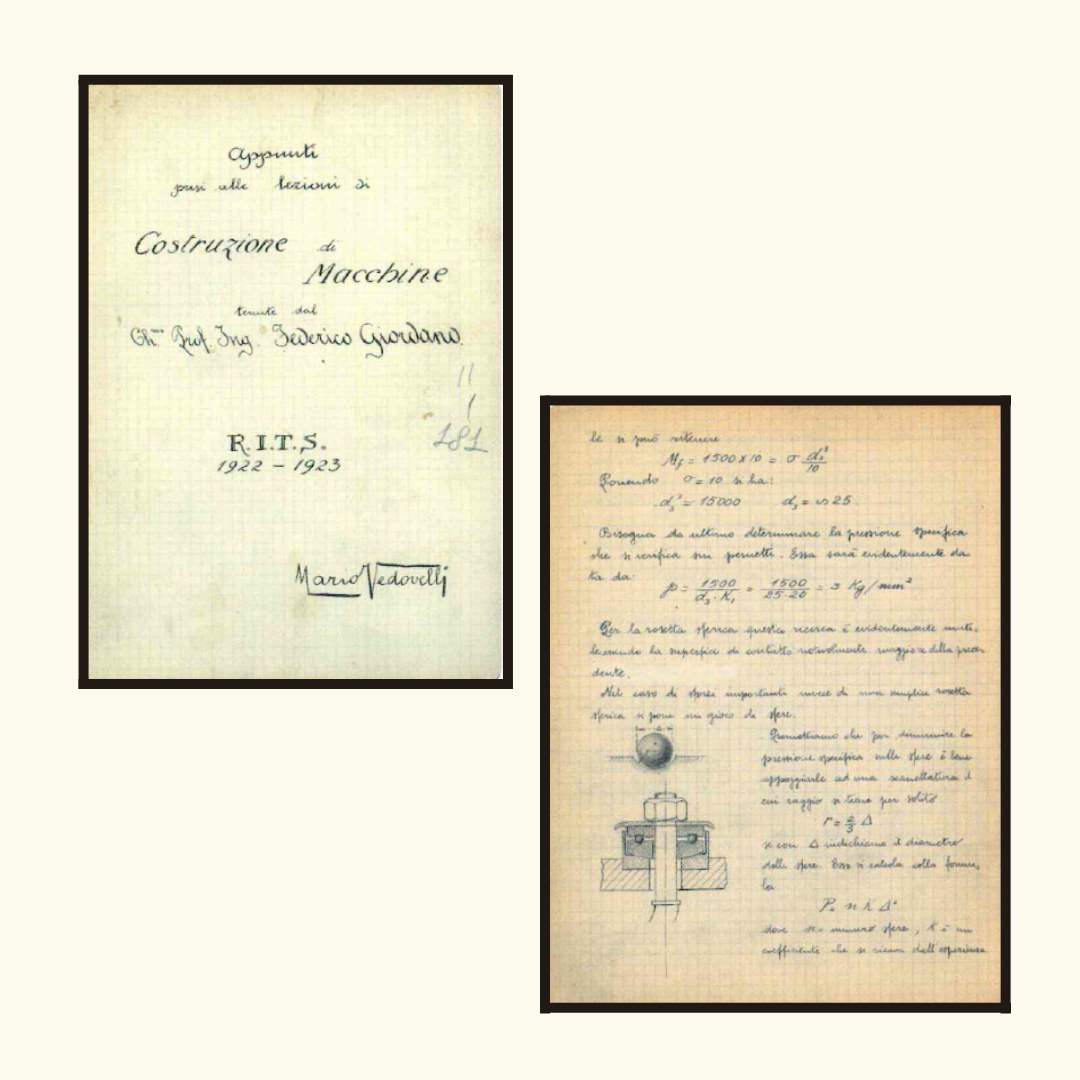 Appunti
presi alle lezioni di
Costruzione di
Macchine
tenute dal
Ch.mo Prof. Ing. Federico Giordano
11
1
181
R.I.T.S.
1922 – 1923
Mario Vedovelli
le si può ritenere
Mf = 1500 x 10 = σ d₃³/10
Ponendo σ = 10 si ha:
d₃³ = 15000 d₃ = ∾ 25
Bisogna da ultimo determinare la pressione specifica
che si verifica sui pernetti. Essa sarà evidentemente da-
ta da:
p = 1500/d₃·K₁ = 1500/25·20 = 3 Kg/mm²
Per la rosetta sferica questa ricerca è evidentemente inuti-
le essendo la superficie di contatto notevolmente maggiore della prece-
dente.
Nel caso di sforzi importanti invece di una semplice rosetta
sferica si pone un gioco di sfere.
Premettiamo che per diminuire la
pressione specifica sulle sfere è bene
appoggiarle ad una scanellatura il
cui raggio si tiene per solito
r = 2/3 Δ
se con Δ indichiamo il diametro
delle sfere. Esso si calcola colla formu-
la
P = n K Δ²
dove n = numero sfere, K è un
coefficiente che si ricava dall'esperienza